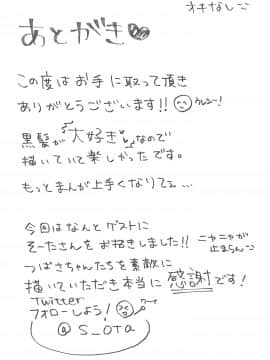 オチなし
あとがき
この度はお手に取って頂き
ありがとうございます!! ウレシー!
黒髪が大好きなので
描いていて楽しかったです。
もっとまんが上手くなりてぇ…
今回はなんとゲストに
そーたさんをお招きしました!! ニヤニヤが
止まらん
つばさちゃんたちを素敵に
描いていただき本当に感謝です!
Twitter
フォローしよう!
@S_OTA